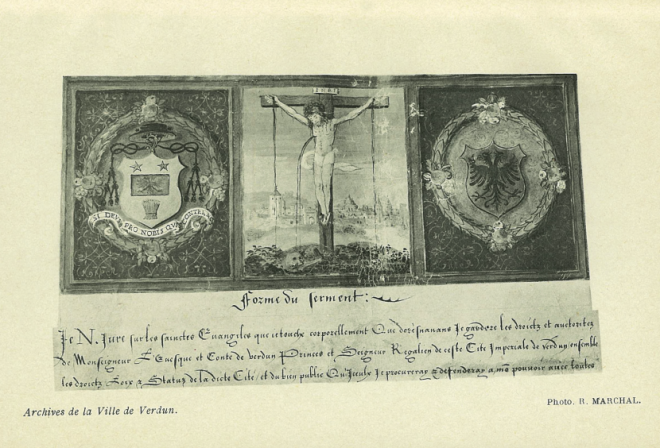 INRI
SI DEUS PRO NOBIS QUIS CONTRA NOS
Forme du serment:
Je N. Jure sur les sainctes Evangiles que ie touche corporellement Que doresnavans Je garderez les droictz et auctoritez
de Monseigneur L'Evesque et Conte de Verdun Princes et Seigneur Regalien de ceste Cité Imperiale de verdun, ensemble
les droictz Loix & Statutz de la dicte Cité, et du bien public Qu'Jceulx Je procureray & defenderay a mō pouvoir avec toutes
Archives de la Ville de Verdun.
Photo. R. MARCHAL.